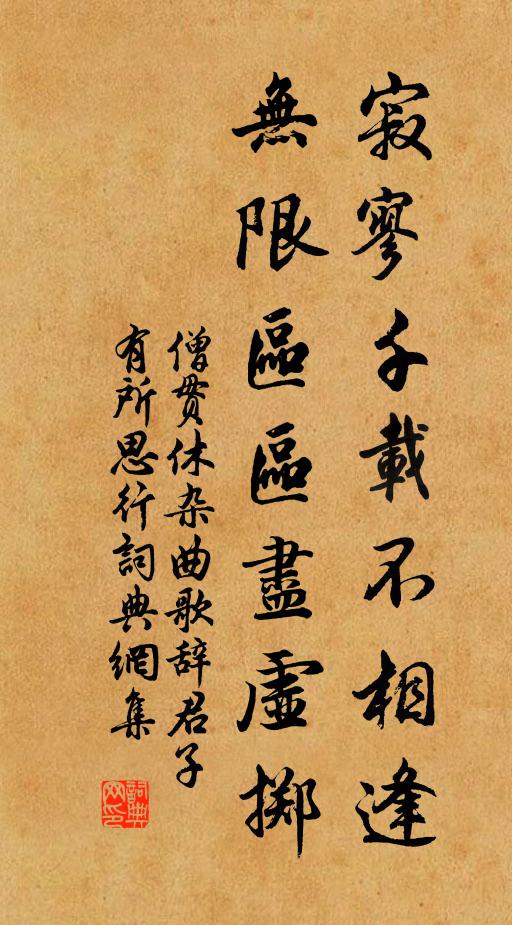 寂寥千載不相逢
無限區區盡虛擲
僧貫休杂曲歌辞君子
有所思行詞典網集
詞典网印